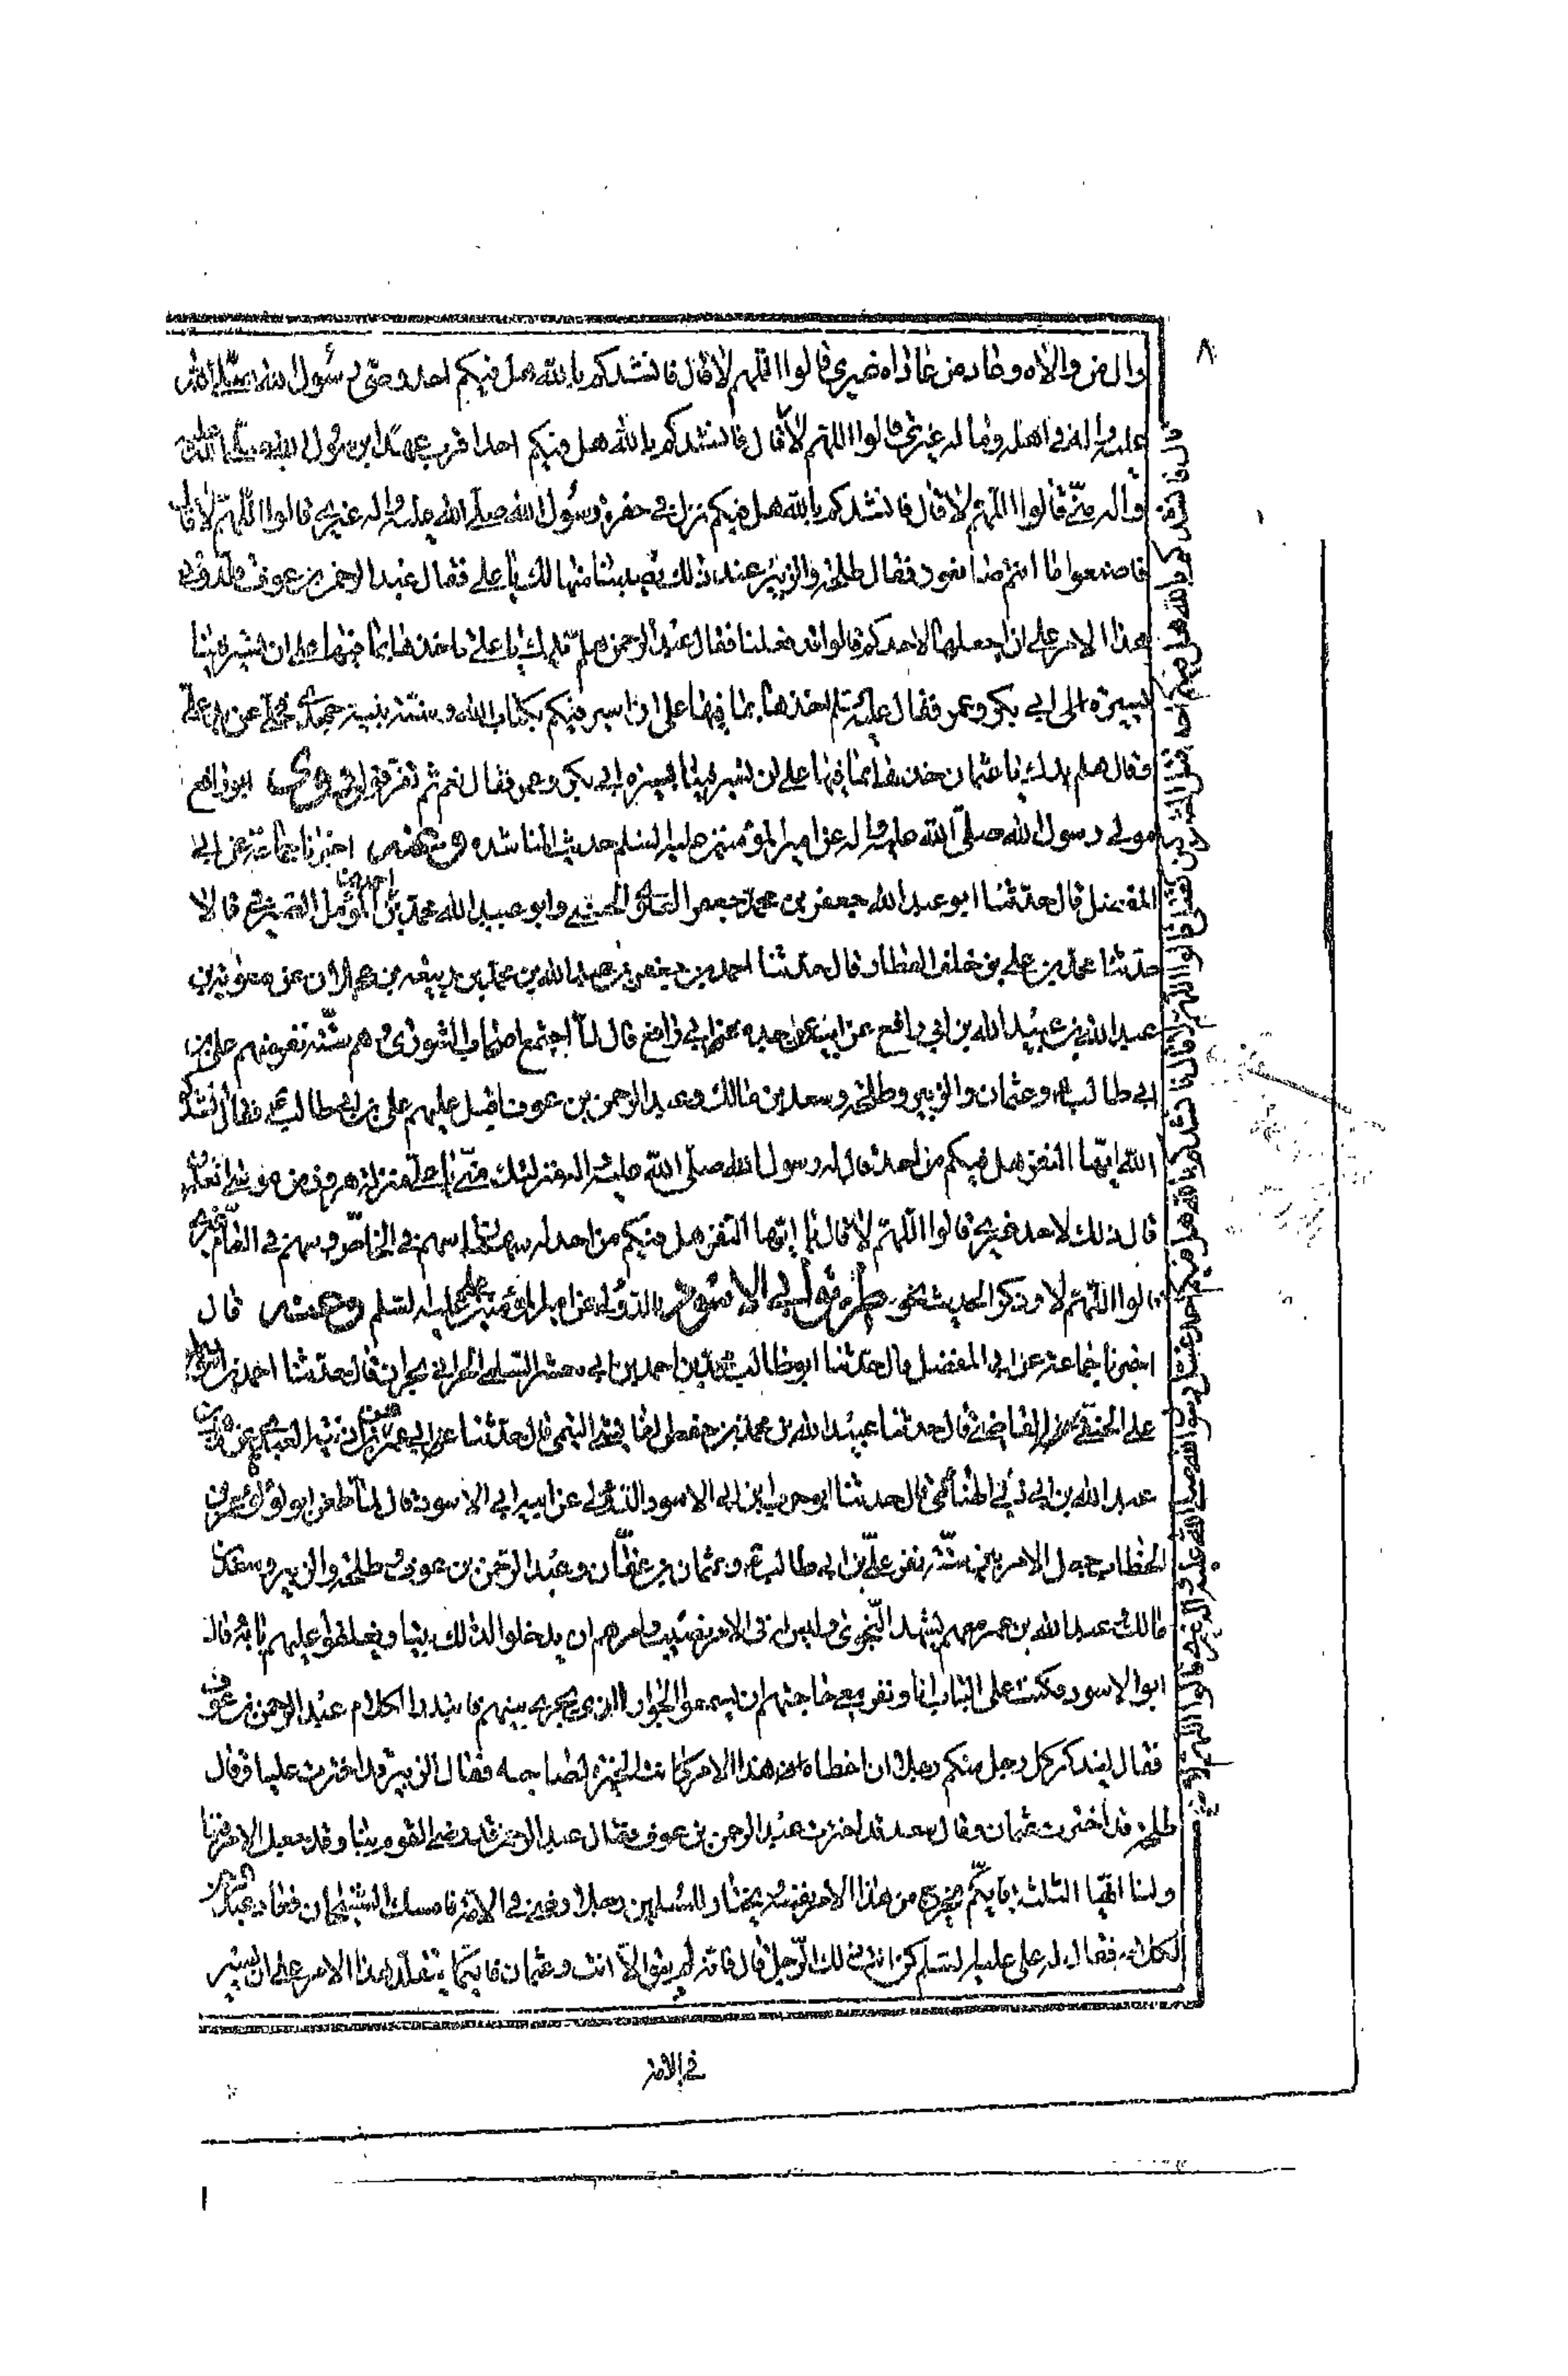 ٨
وال من والاه وعاد من عاداه غيري قالوا اللهم لا قال فانشدكم بالله هل فيكم احد وصي رسول الله صلى الله
عليه واله في اهله وماله غيري قالوا اللهم لا قال فانشدكم بالله هل فيكم احد اقرب عهدا برسول الله صلى الله عليه
واله منّي قالوا اللهم لا قال فانشدكم بالله هل فيكم نزل في حفرة رسول الله صلى الله عليه واله غيري قالوا اللهم لا قال
فاصنعوا ما انتم صانعون فقال طلحة والزبير عند ذلك نصيبنا منها لك يا علي فقال عبد الرحمن بن عوف
هذا الامر على ان اجعلها لاحدكم قالوا قد فعلنا فقال عبد الرحمن هلم يدك يا علي تاخذها بما فيها على ان تسير فينا
بسيرة ابي بكر وعمر فقال عليه السلم اخذها بما فيها على ان اسير فيكم بكتاب الله وسنة نبيه جهدي فخلى عن يد علي
فقال هلم يدك يا عثمان خذها بما فيها على ان تسير فينا بسيرة ابي بكر وعمر فقال نعم ثم تفرقوا وروى ابو رافع
مولى رسول الله صلى الله عليه واله عن امير المؤمنين عليه السلم حديث المناشدة وعنه اخبرنا جماعة عن ابي
المفضل قال حدثنا ابو عبد الله جعفر بن محمد بن جعفر العلوي الحسني وابو عبيد الله محمد بن احمد بن المؤمل الصيرفي قالا
حدثنا محمد بن علي بن خلف العطار قال حدثنا احمد بن جعفر بن عبد الله بن محمد بن ربيعة بن عجلان عن معوية بن
عبد الله بن عبيد الله بن ابي رافع عن ابيه عن جده عن ابي رافع قال لما اجتمع اصحاب الشورى وهم ستة نفر وهم علي بن
ابي طالب ع وعثمان والزبير وطلحة وسعد بن مالك وعبد الرحمن بن عوف اقبل عليهم علي بن ابي طالب ع فقال انشدكم
الله ايها النفر هل فيكم من احد قال له رسول الله صلى الله عليه واله منزلتك منّي يا علي منزلة هرون من موسى اتعلمون
قال ذلك لاحد غيري قالوا اللهم لا قال ايها النفر هل فيكم من احد له سهمان سهم في الخاص وسهم في العام غيري
قالوا اللهم لا وذكر الحديث نحوه طريق ابي الاسود الدؤلي عن امير المؤمنين علي عليه السلم وعنه قال
اخبرنا جماعة عن ابي المفضل قال حدثنا ابو طالب محمد بن احمد بن ابي معشر السلمي الحراني بحران قال حدثنا احمد بن الاسود
علي الحنفي القاضي قال حدثنا عبيد الله بن محمد بن حفص العايشي التيمي قال حدثنا عن ابي عمر بن العبدي عن وهب بن
عبد الله بن ابي ذبي الهنائي قال حدثنا ابو حرب بن ابي الاسود الدؤلي عن ابيه ابي الاسود قال لما طعن ابو لؤلؤة عمر بن
الخطاب جعل الامر بين ستة نفر علي بن ابي طالب ع وعثمان بن عفان وعبد الرحمن بن عوف وطلحة والزبير وسعد بن
مالك وعبد الله بن عمر معهم يشهد النجوى وليس له في الامر نصيب وامرهم ان يدخلوا لذلك بيتا ويغلقوا عليهم بابه قال
ابو الاسود فكنت على الباب انا ونفر معي حاجتهم ان يسمعوا الحوار الذي يجري بينهم فابتدر الكلام عبد الرحمن بن عوف
فقال ليذكر كل رجل منكم رجلا ان اخطاه هذا الامر كانت الخيرة لصاحبه فقال الزبير قد اخترت عليا وقال
طلحة قد اخترت عثمان وقال سعد قد اخترت عبد الرحمن بن عوف فقال عبد الرحمن قد رضي القوم بنا وقد جعل الامر فينا
ولنا ايها الثلثة فايكم يخرج من هذا الامر نفسه ويختار للمسلمين رجلا رضى في الامة فامسك الشيخان فعاد عبد الرحمن
لكلامه فقال له علي عليه السلم كن انت ذلك الرجل قال فانه لم يبق الا انت وعثمان فايكما يتقلد هذا الامر على ان يسير
في الامة
قال فانشدكم بالله هل فيكم احد قالوا اللهم لا قال فانشدكم بالله هل فيكم احد غسل رسول الله صلى الله عليه واله غيري قالوا اللهم لا